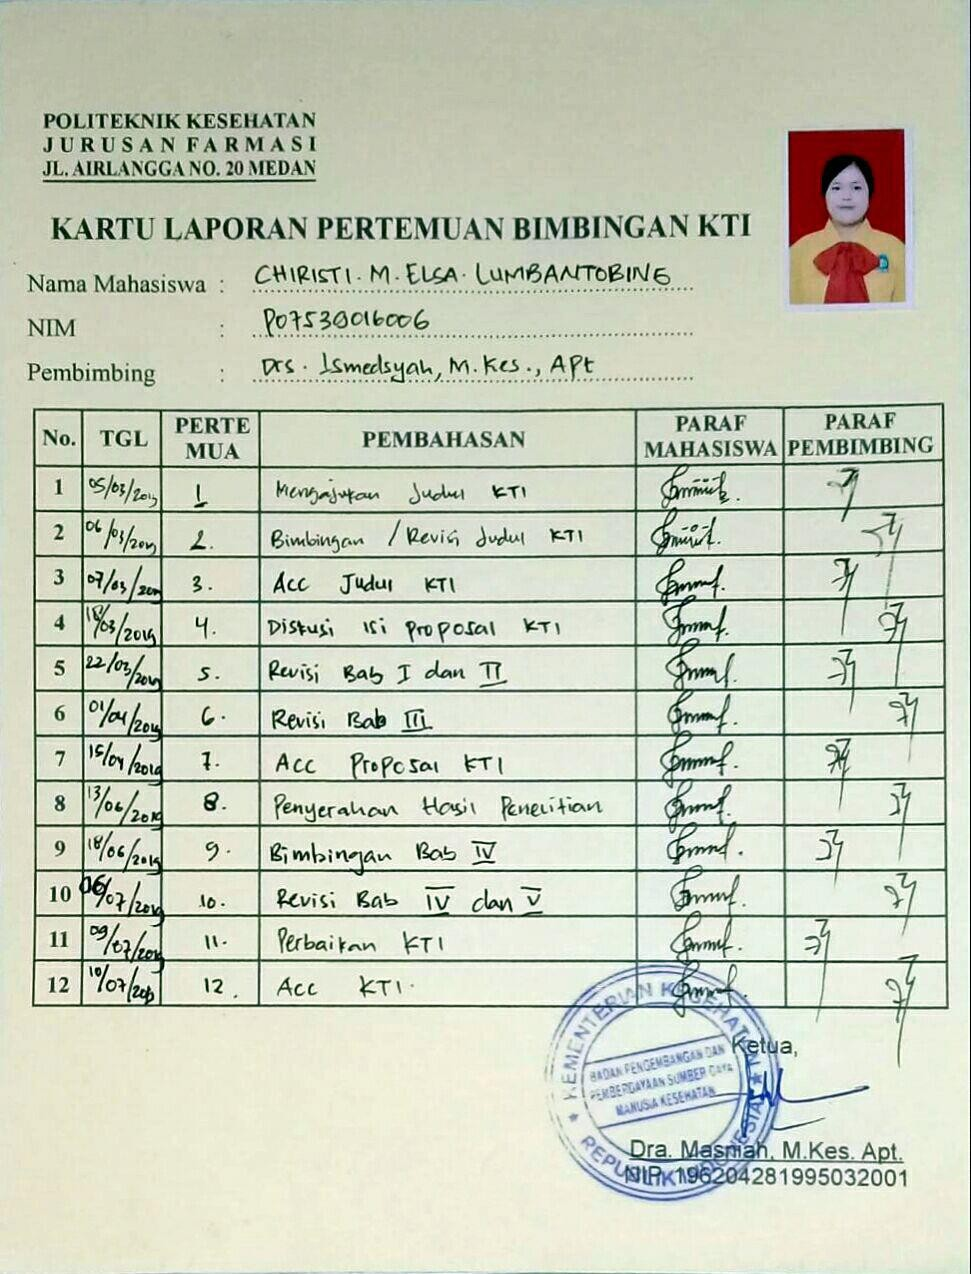 POLITEKNIK KESEHATAN
JURUSAN FARMASI
JL. AIRLANGGA NO. 20 MEDAN
KARTU LAPORAN PERTEMUAN BIMBINGAN KTI
Nama Mahasiswa : CHIRISTI. M. ELSA. LUMBANTOBING
NIM : P07539016006
Pembimbing : Drs. Ismedsyah, M.Kes., Apt
No. TGL PERTEMUA PEMBAHASAN PARAF MAHASISWA PARAF PEMBIMBING
1 05/03/2019 1 Mengajukan Judul KTI
2 06/03/2019 2. Bimbingan / Revisi Judul KTI
3 07/03/2019 3. Acc Judul KTI
4 18/03/2019 4. Diskusi isi proposal KTI
5 22/03/2019 5. Revisi Bab I dan II
6 01/04/2019 6. Revisi Bab III
7 15/04/2019 7. Acc Proposal KTI
8 13/06/2019 8. Penyerahan Hasil Penelitian
9 18/06/2019 9. Bimbingan Bab IV
10 06/07/2019 10. Revisi Bab IV dan V
11 09/07/2019 11. Perbaikan KTI
12 10/07/2019 12. Acc KTI.
Ketua,
KEMENTERIAN KESEHATAN
BADAN PENGEMBANGAN DAN
PEMBERDAYAAN SUMBER DAYA
MANUSIA KESEHATAN
REPUBLIK INDONESIA
Dra. Masniah, M.Kes. Apt.
NIP. 196204281995032001